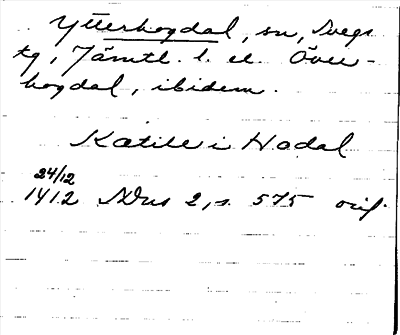 Ytterhogdal, sn, Svegs
tg, Jämtl. l. el. Över-
hogdal, ibidem.
Katill i Hadal
24/12
1412 SDns 2, s. 575 orig.